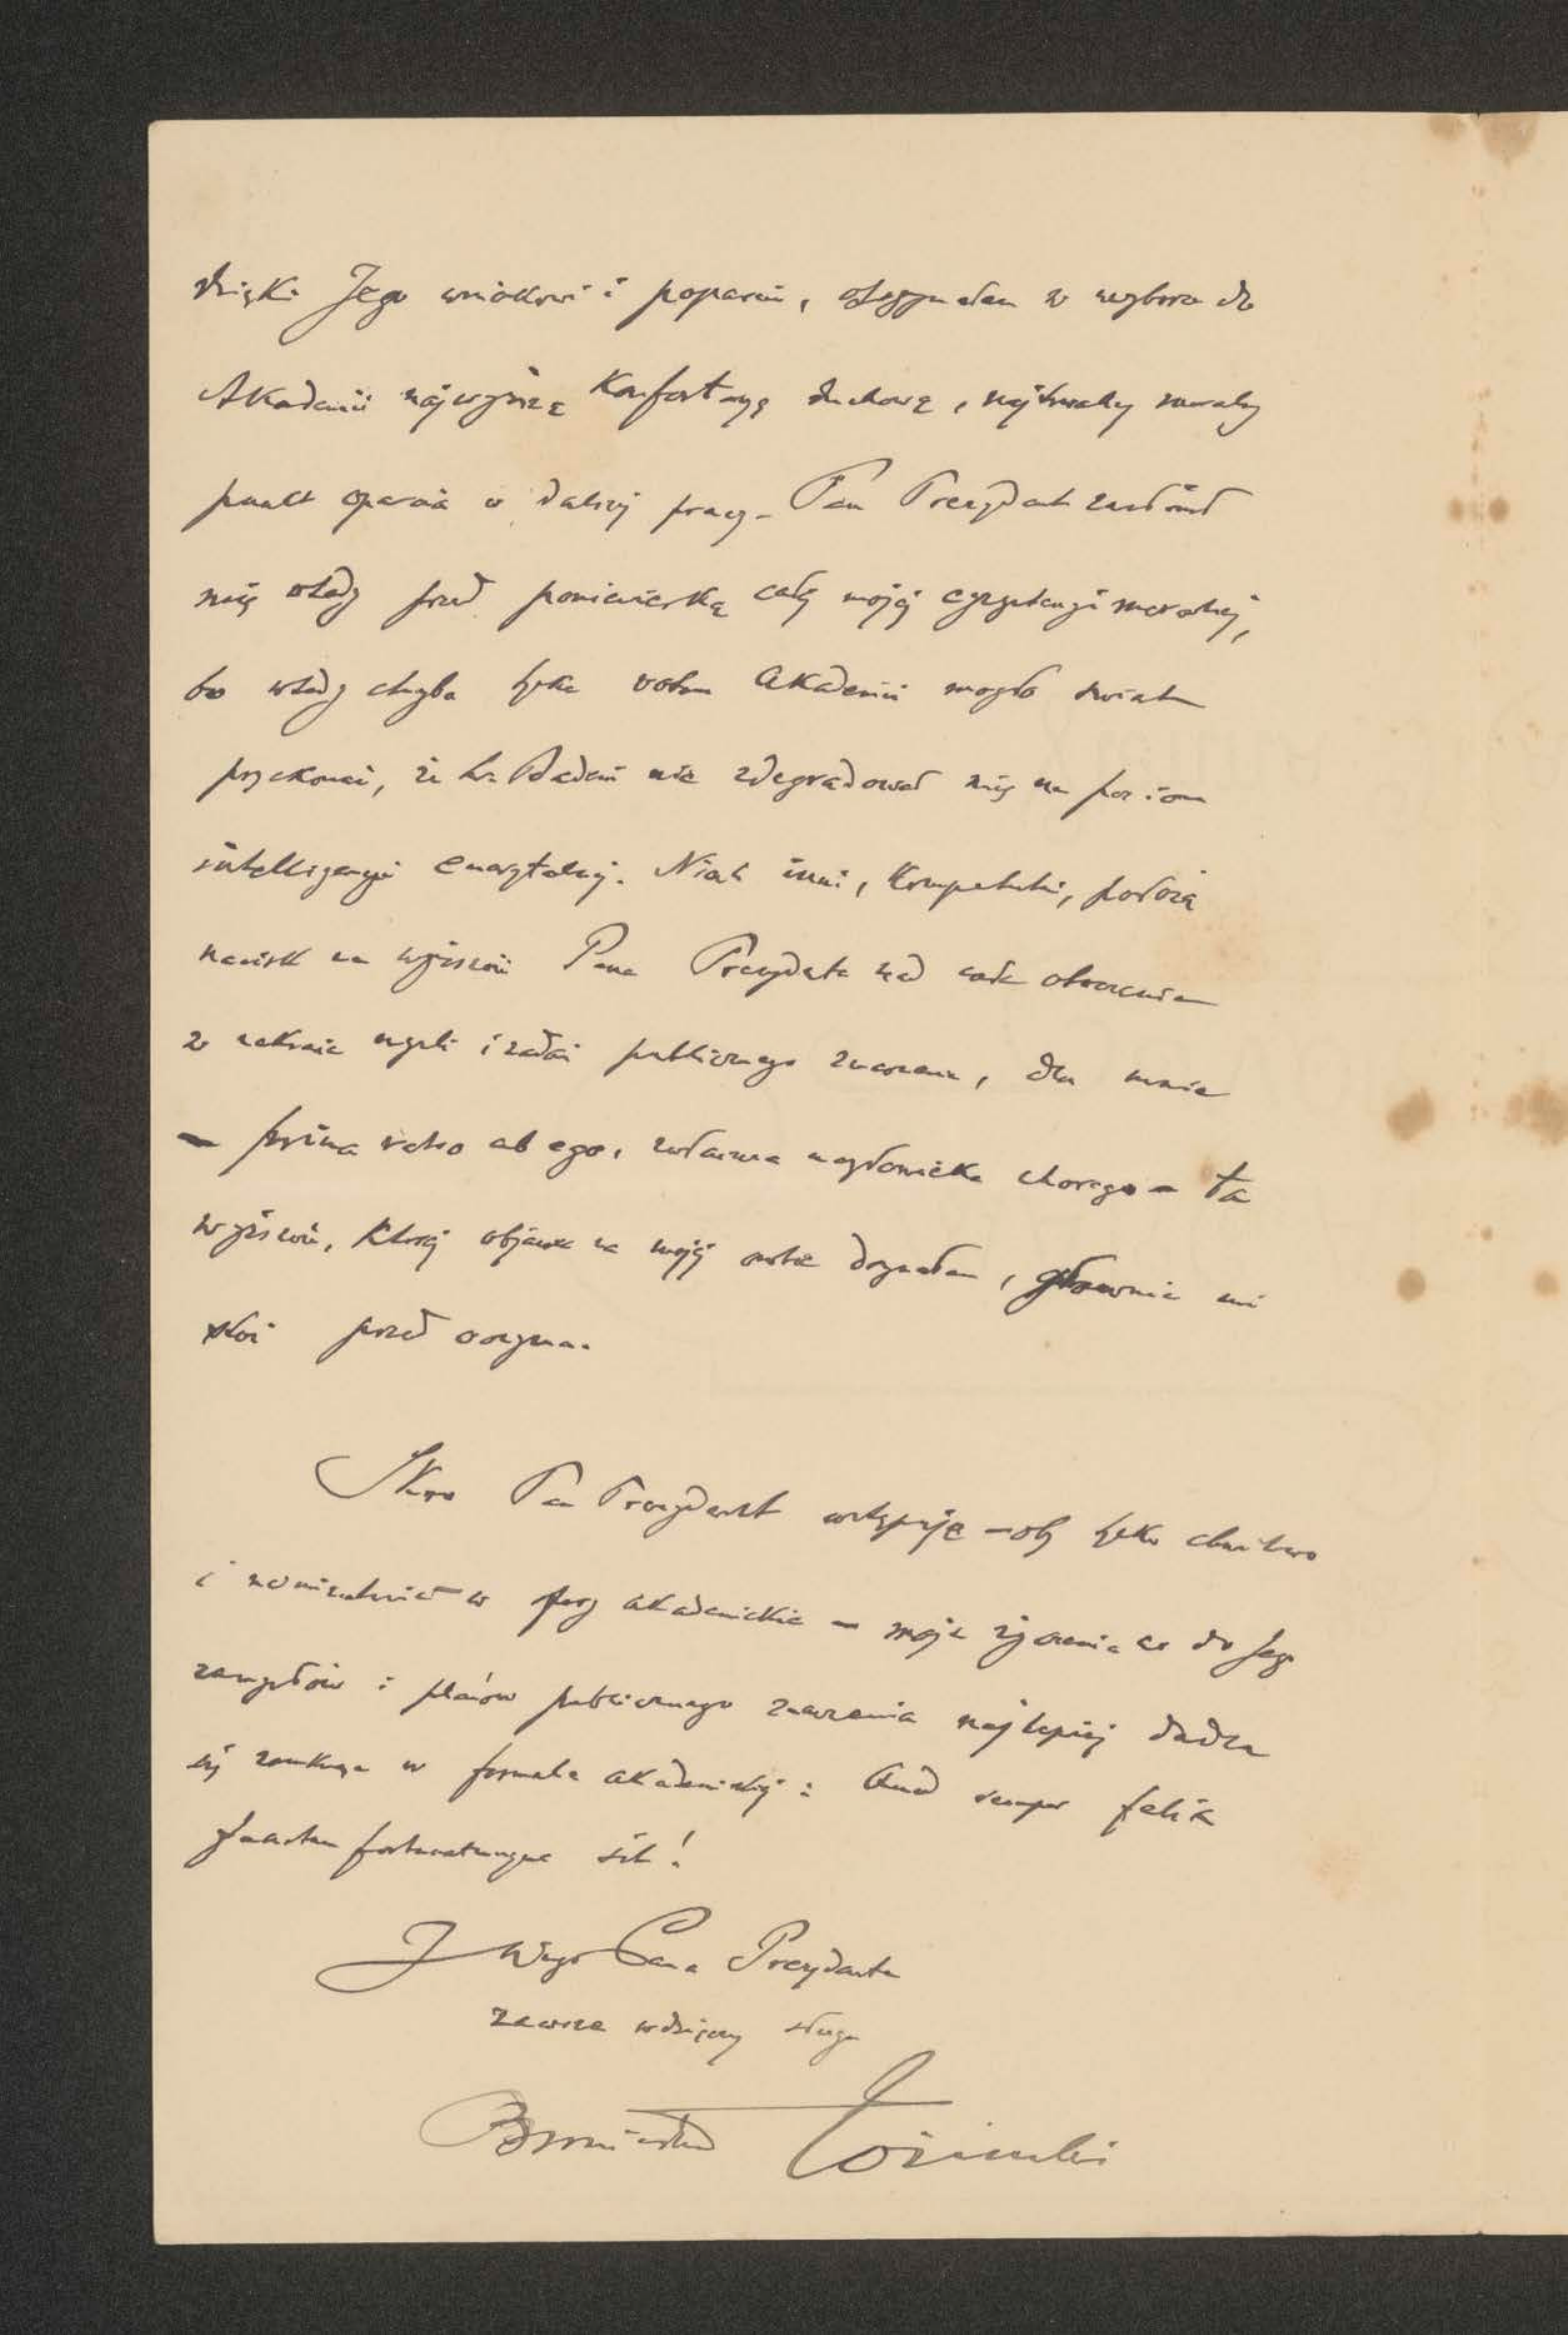 dzięki Jego wnioskowi i poparciu, otrzymałem w wyborze do
Akademii najwyższą Konfortacyę duchową, najtrwalszy moralny
punkt oparcia w dalszej pracy. Pan Prezydent zasłonił
mię wtedy przed poniewierką całej mojej egzystencyi moralnej,
bo wtedy chyba tylko votum Akademii mogło świat
przekonać, że hr. Badeni nie zdegradował mię na poziom
intelligencyi emerytalnej. Niech inni, kompetentni, położą
nacisk na wyższość Pana Prezydenta nad całe otoczenie
w zakresie myśli i zadań publicznego znaczenia, dla mnie
— prima ratio ab ego, zwłaszcza u człowieka chorego — ta
wyższość, której objawu na mojej osobie doznałem, głównie mi
stoi przed oczyma.
Skoro Pan Prezydent wstępuje — oby tylko chwilowo
i w akademickie — moje życzenia co do Jego
zamysłów i planów publicznego znaczenia najlepiej dadzą
się zamknąć w formule akademickiej: Quod semper felix
faustum fortunatumque sit!
JWgo Pana Prezydenta
zawsze wdzięczny sługa
Bronisław Łoziński